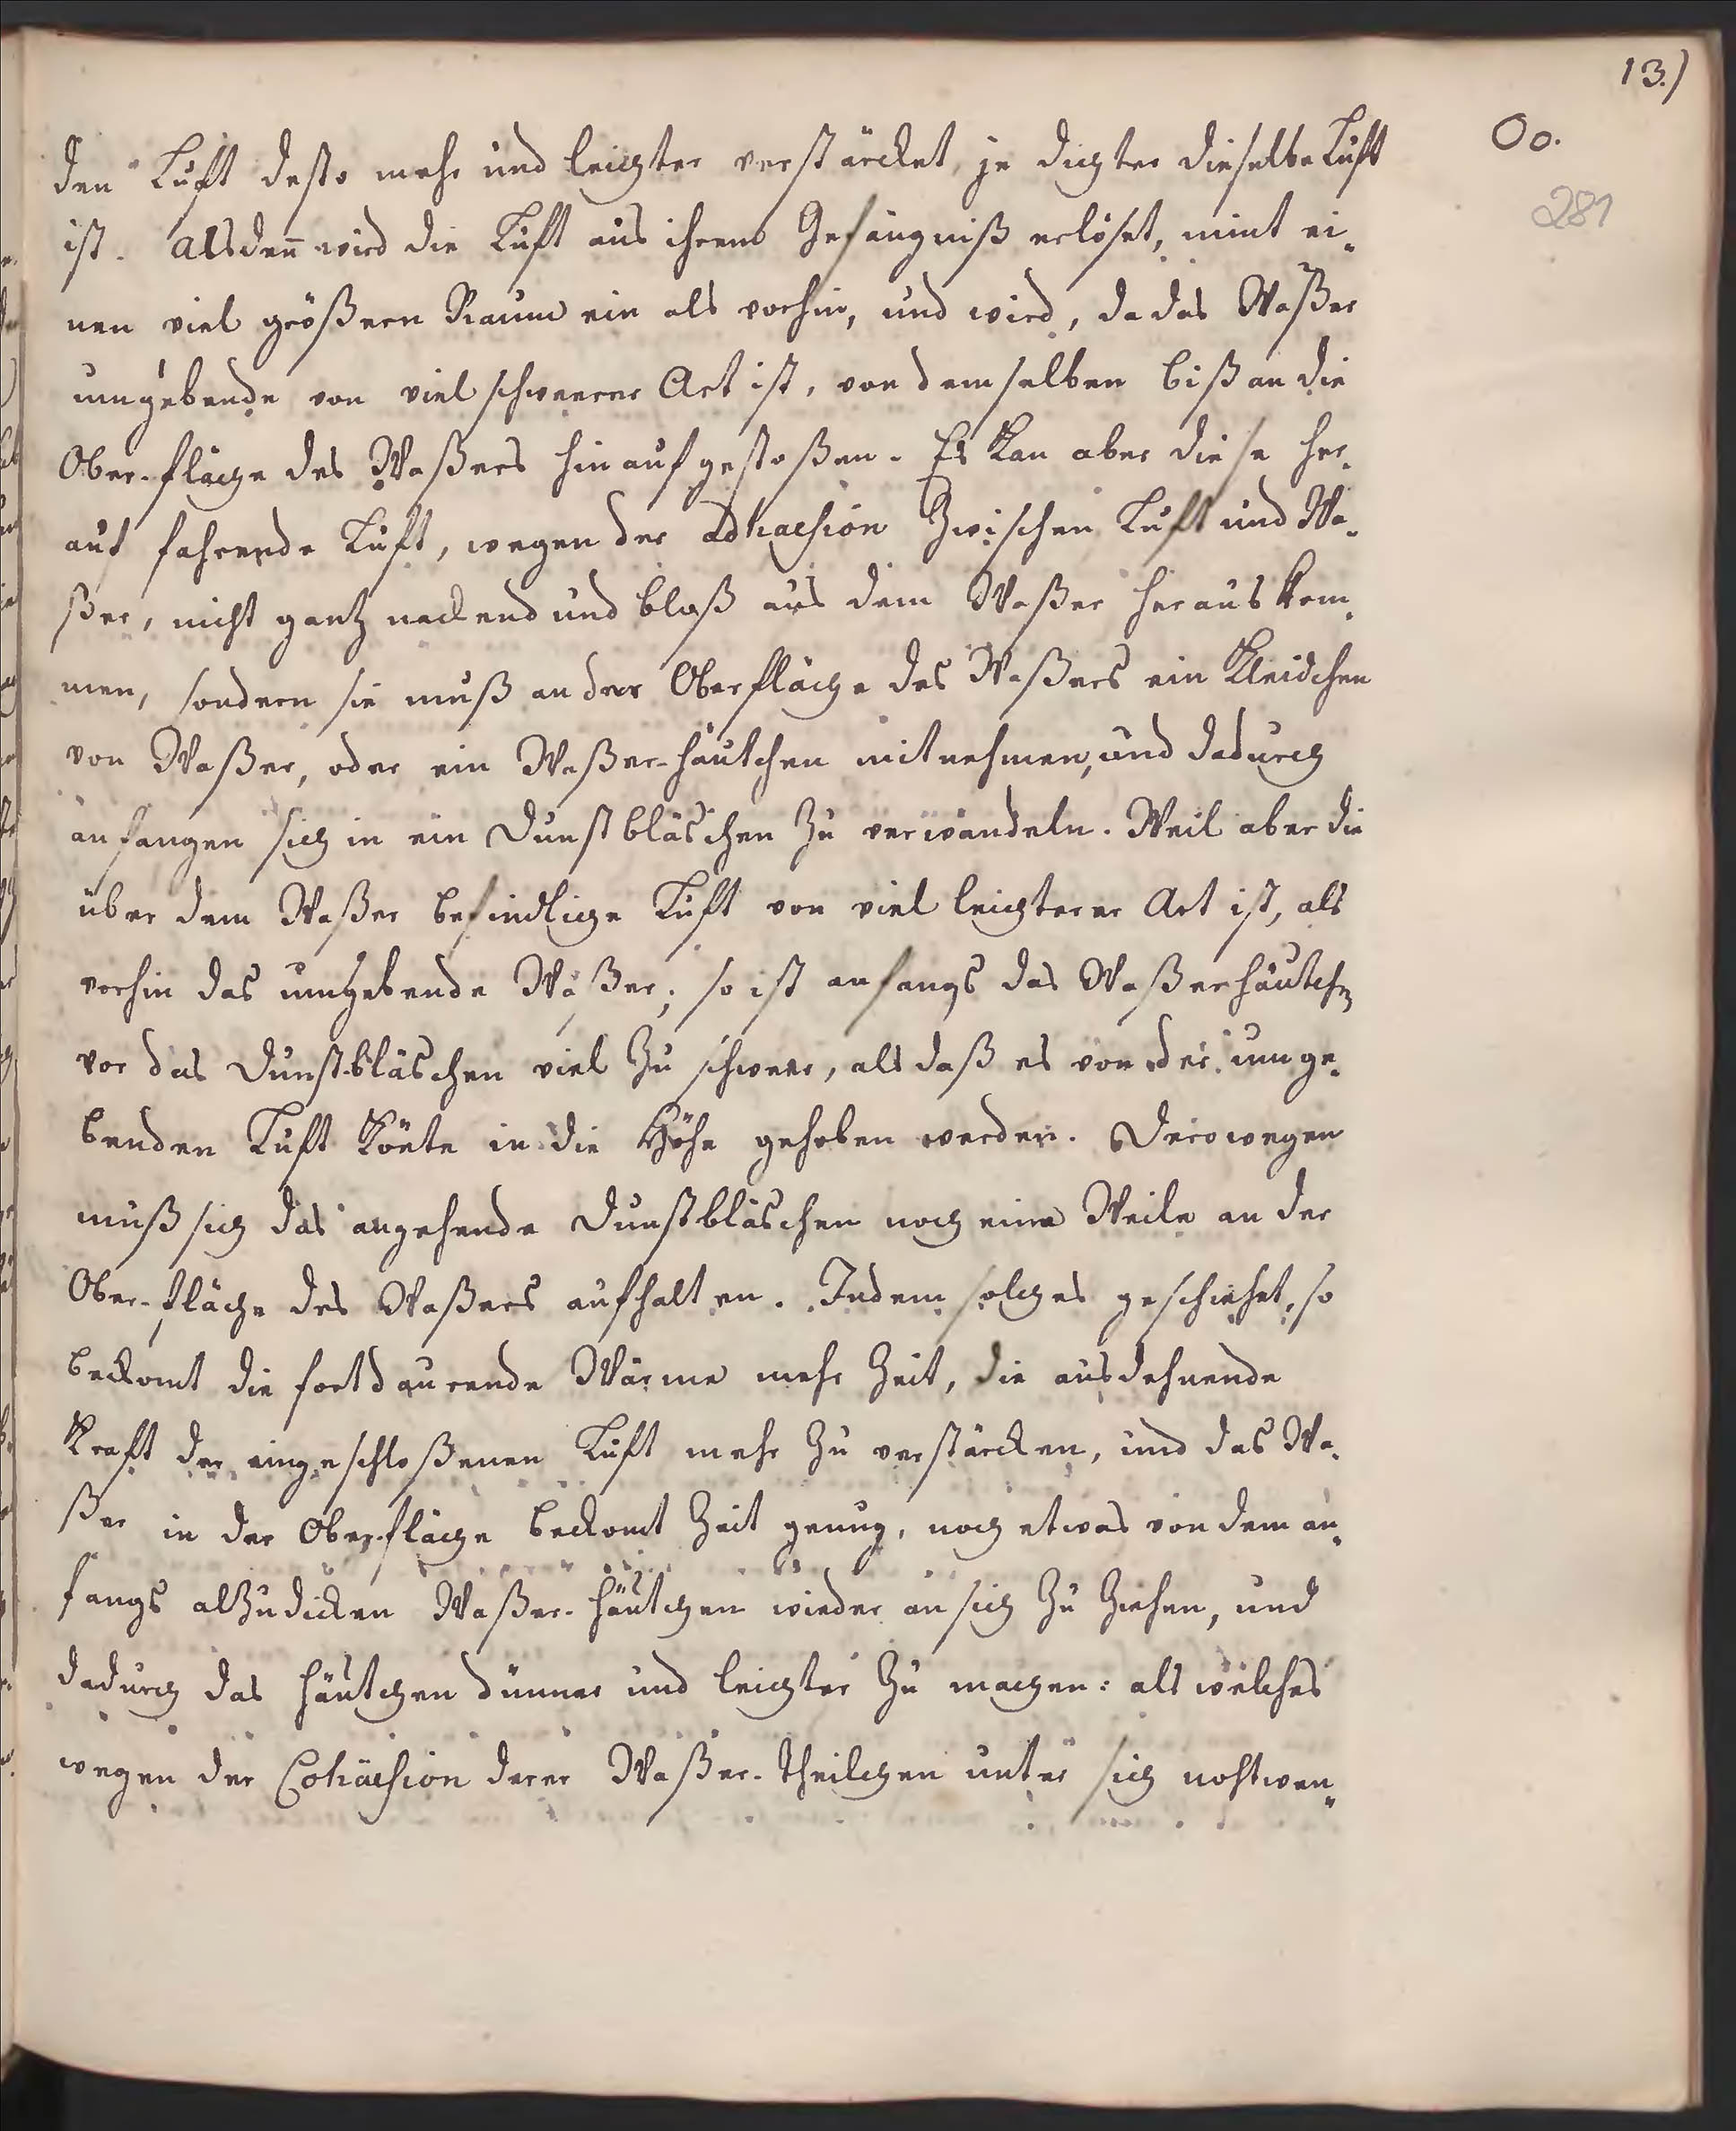 13.)
Oo.
281
den Luft desto mehr und leichter verstärcket, je dichter dieselbe Luft
ist. Alsdeñ wird die Luft aus ihrem Gefängniß erlöset, nimt ei-
nen viel größern Raum ein als vorhin, und wird, da das Waßer
umgebende von viel schwerer Art ist, von demselben biß an die
Ober-fläche des Waßers hinauf gestoßen. Es kan aber diese her-
auf fahrende Luft, wegen der adhaesion zwischen Luft und Wa-
ßer, nicht gantz nackend und bloß aus dem Waßer heraus kom-
men, sondern sie muß an der Oberfläche des Waßers ein Kleidchen
von Waßer, oder ein Waßer-häutchen mitnehmen, und dadurch
anfangen sich in ein Dunstbläschen zu verwandeln. Weil aber die
über dem Waßer befindliche Luft von viel leichterer Art ist, als
vorhin das umgebende Waßer; so ist anfangs das Waßerhäutchen
vor das Dunstbläschen viel zu schwer, als daß es von der umge-
benden Luft könte in die Höhe gehoben werden. Derowegen
muß sich das angehende Dunstbläschen noch eine Weile an der
Ober-fläche des Waßers aufhalten. Indem solches geschiehet, so
bekomt die fortdaurende Wärme mehr Zeit, die ausdehnende
Kraft der eingeschloßenen Luft mehr zu verstärcken, und das Wa-
ßer in der Ober-fläche bekomt Zeit genug, noch etwas von dem an-
fangs alzudicken Waßer-häutchen wieder an sich zu ziehen, und
dadurch das häutchen dünner und leichter zu machen: als welches
wegen der Cohäesion derer Waßer-theilchen unter sich nohtwen-